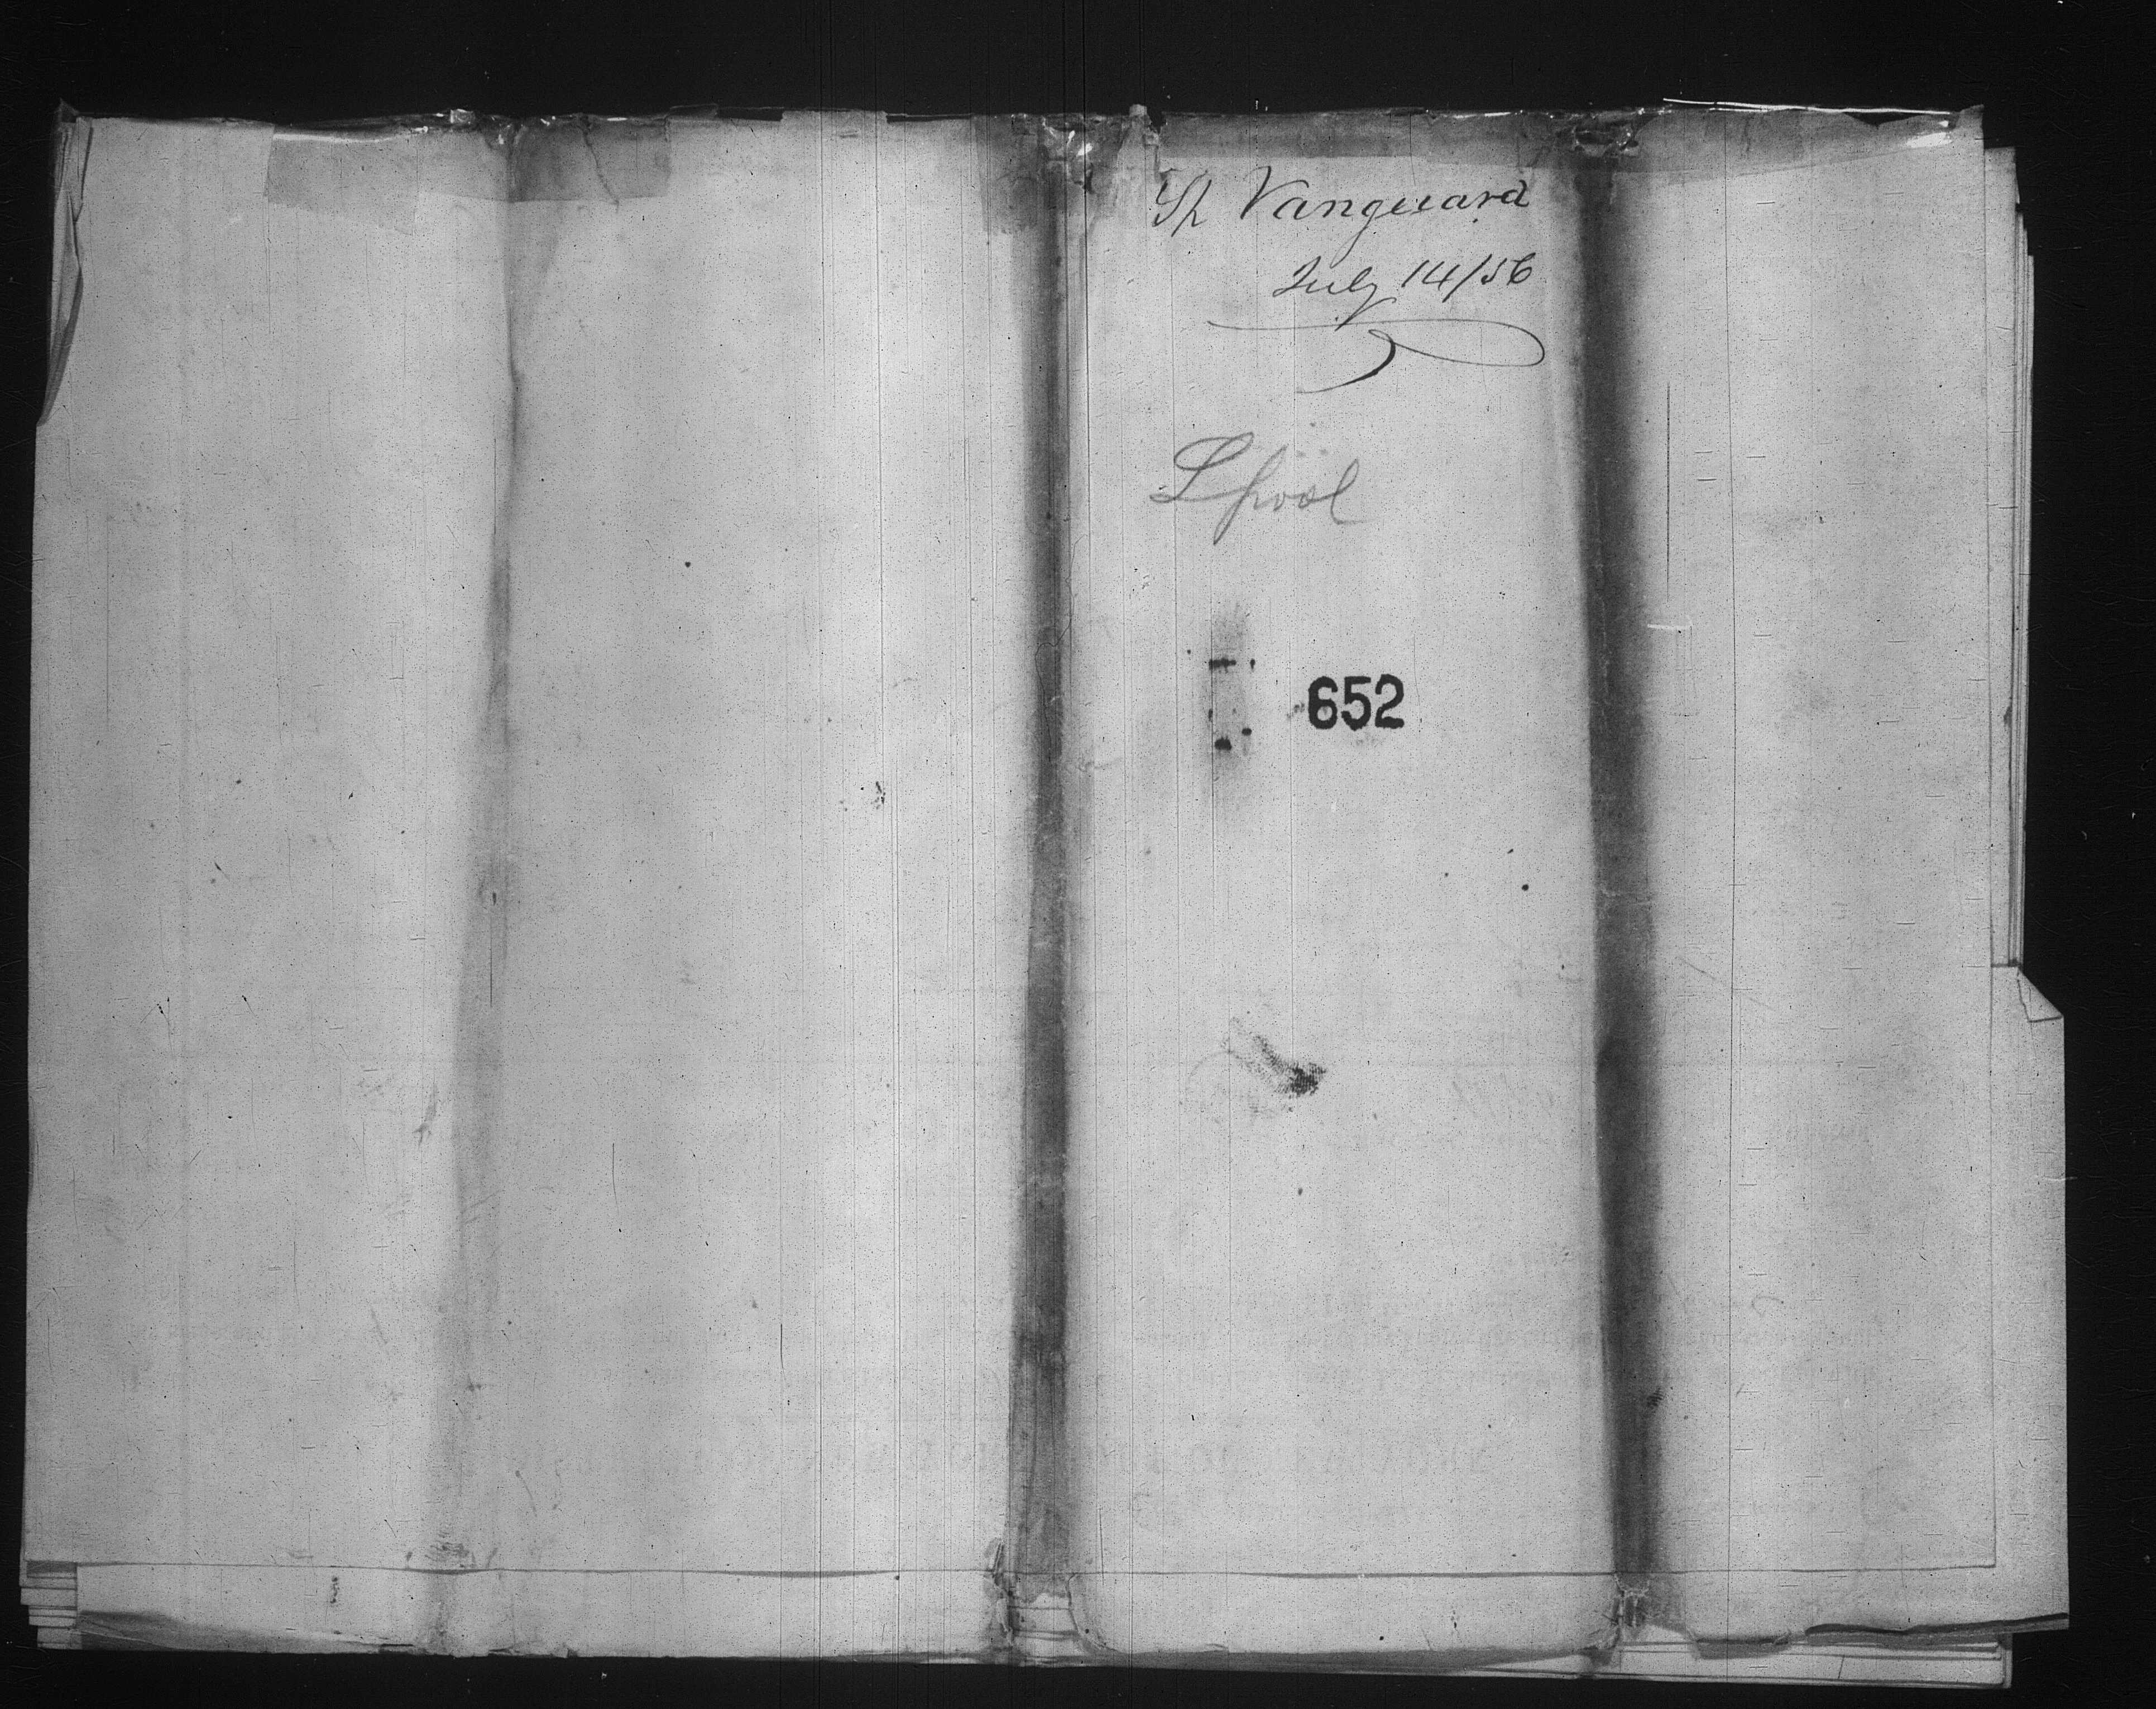 Sh Vanguard
July 14/56
Lpool
652